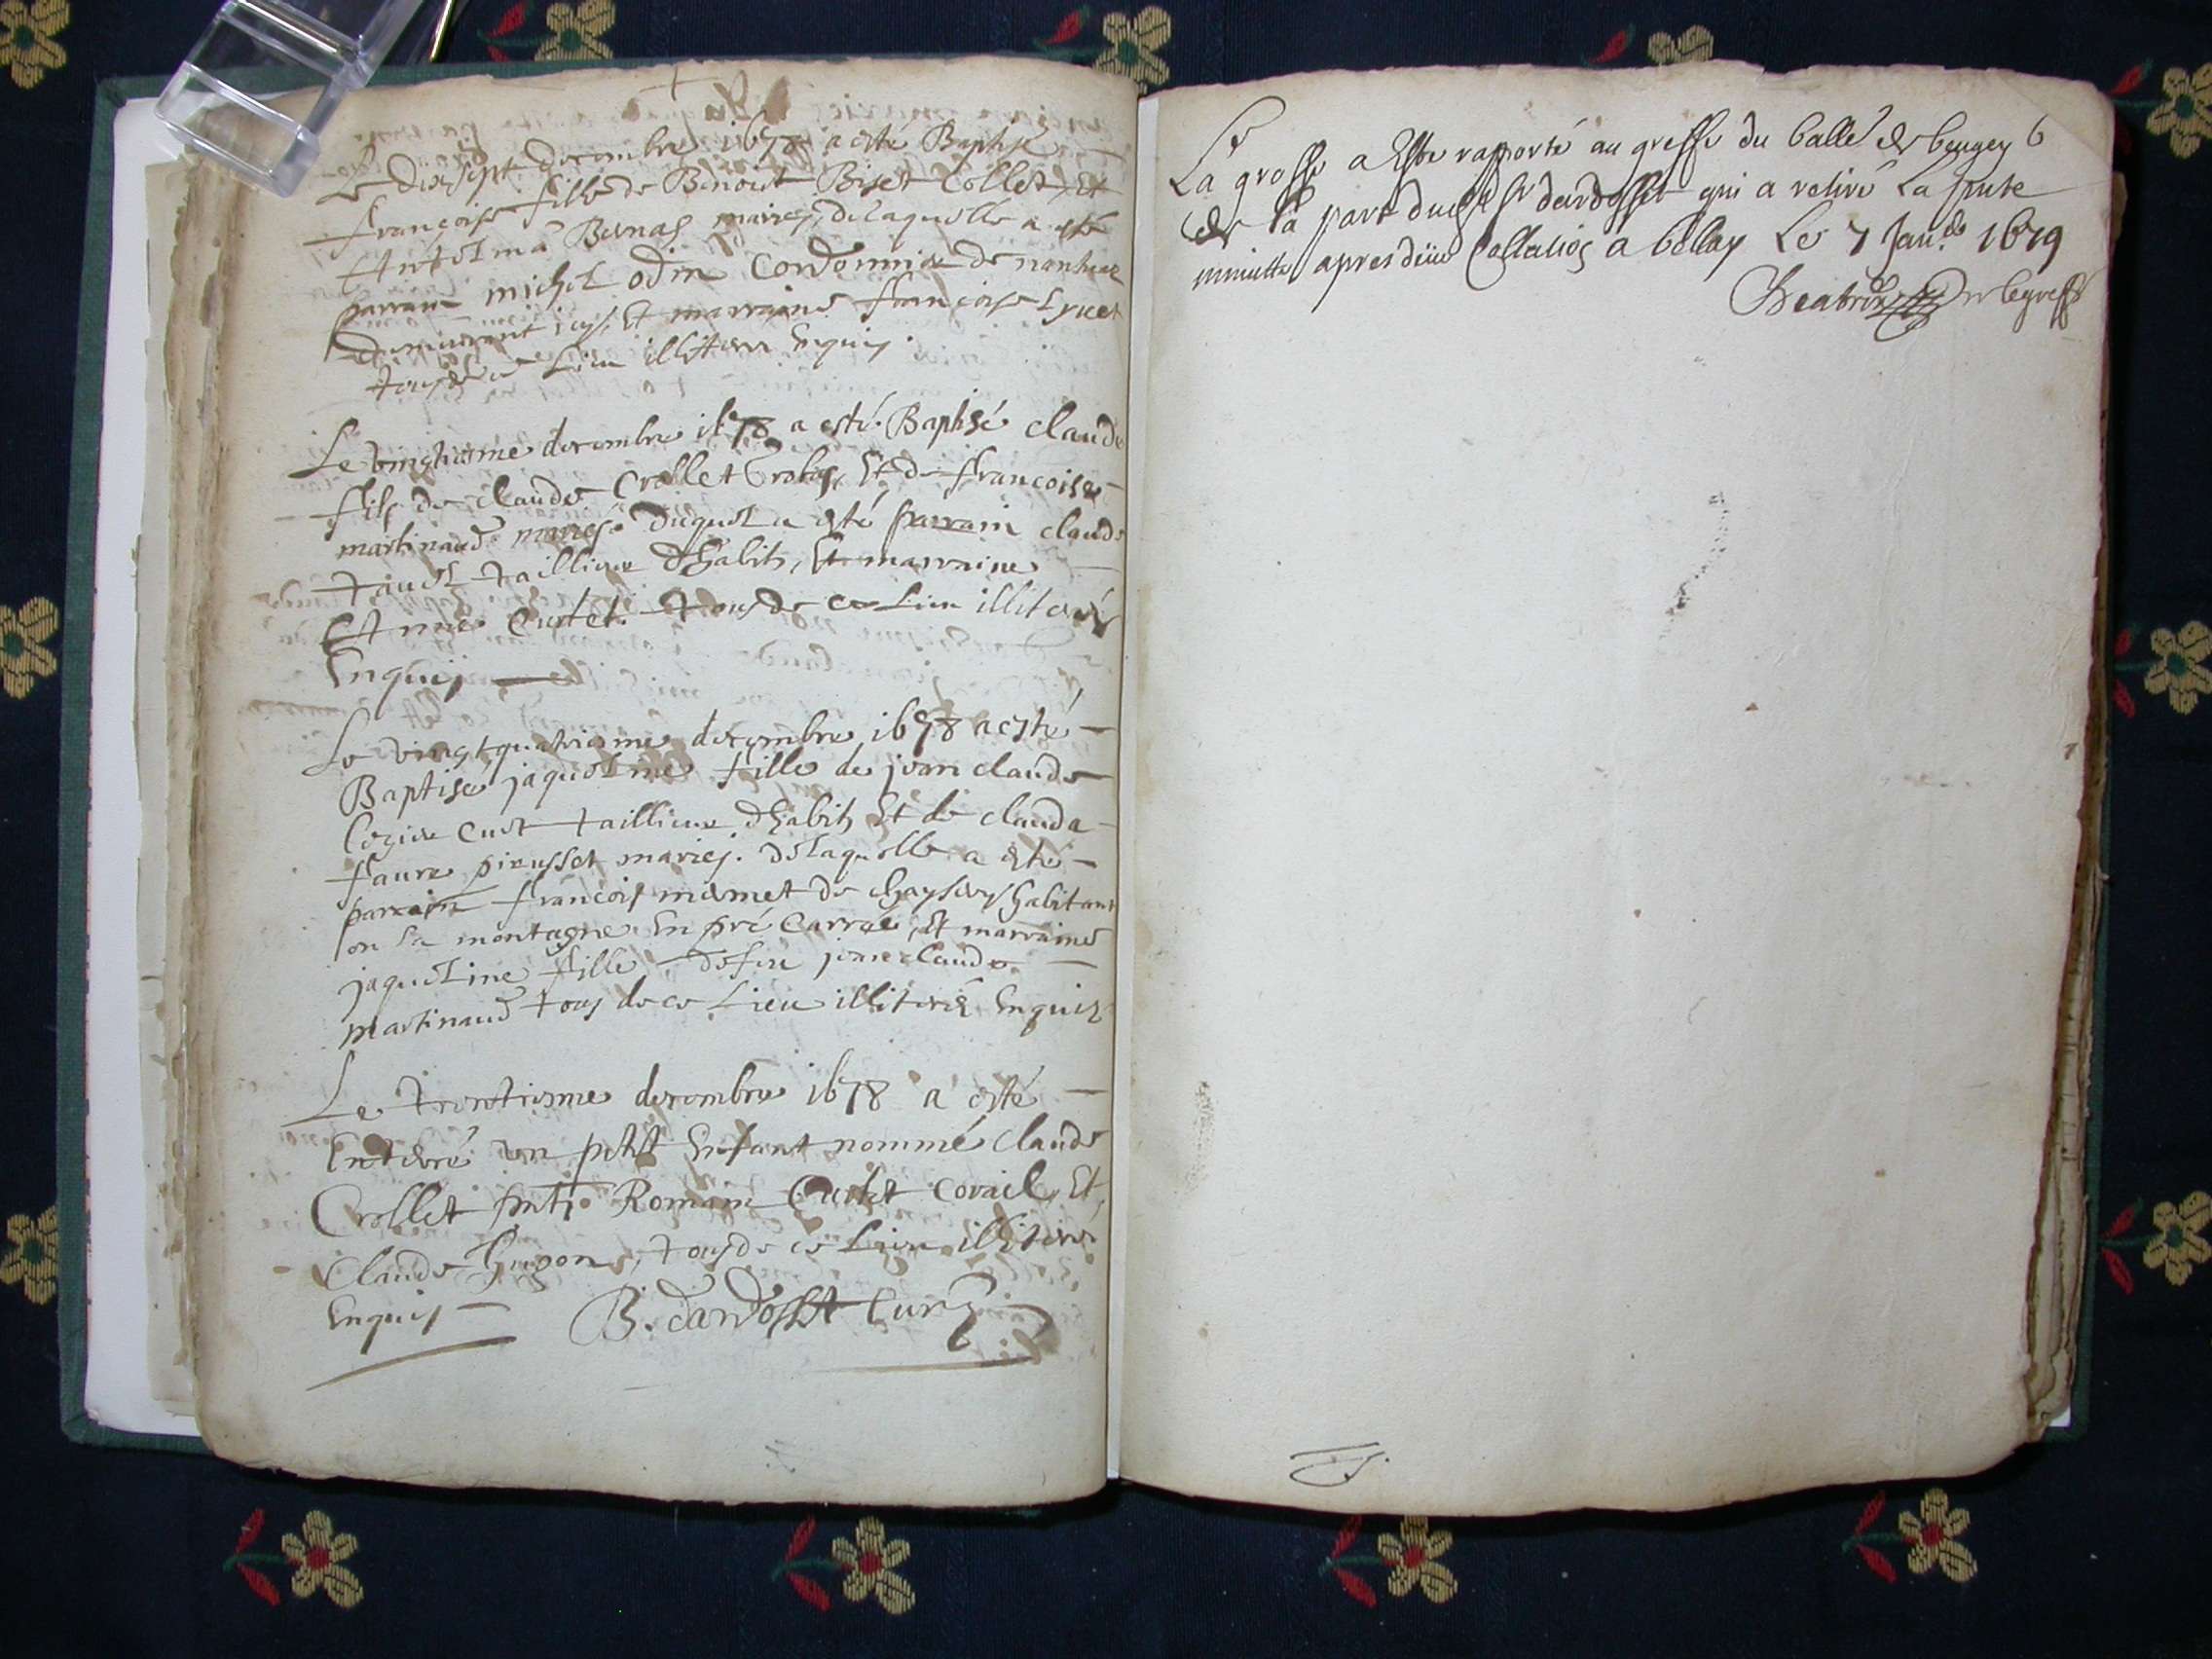 Le dixsept decembre 1678 a esté Baptisé
françoise fille de Benoist Biset Collet, Et
Anthelma Bernas mariés, delaquelle a esté
parrain michel odin Cordonnier de nantua
demeurant icy, Et marraine françoise
tous de ce Lieu Enquis.
Le vingtiesme decembre 1678 a esté Baptisé claude
fils de claude Crollet Et de francoise
martinand mariés. Duquel a esté parrain claude
tavel taillieur d'habits, Et marraine
Estiennie Curtet. tous de ce Lieu illiterés
Enquis
Le vingtquatriesme decembre 1678 a esté
Baptisé jaquelme fille de jean claude
Cuet taillieur d'habits Et de clauda
faure mariés. delaquelle a esté
parrain françois mermet de habitant
en la montagne En pré Carraé, Et marraine
jaqueline fille de feu jean claude
martinand tous de ce Lieu illiterés Enquis
Le trentiesme decembre 1678 a esté
Enterré un petit Enfant nommé claude
Crollet pnts Romain Curtet Et
Claude hugon, tous de ce Lieu illiteré
Enquis B. dardosset Curé
La grosse a Esté rapporté au greffe du balle de beugey 6
de la part dudit sr dardosset qui a retiré La pnte
minutte apres düe Collatioz a bellay Le 7 Jan. 1679